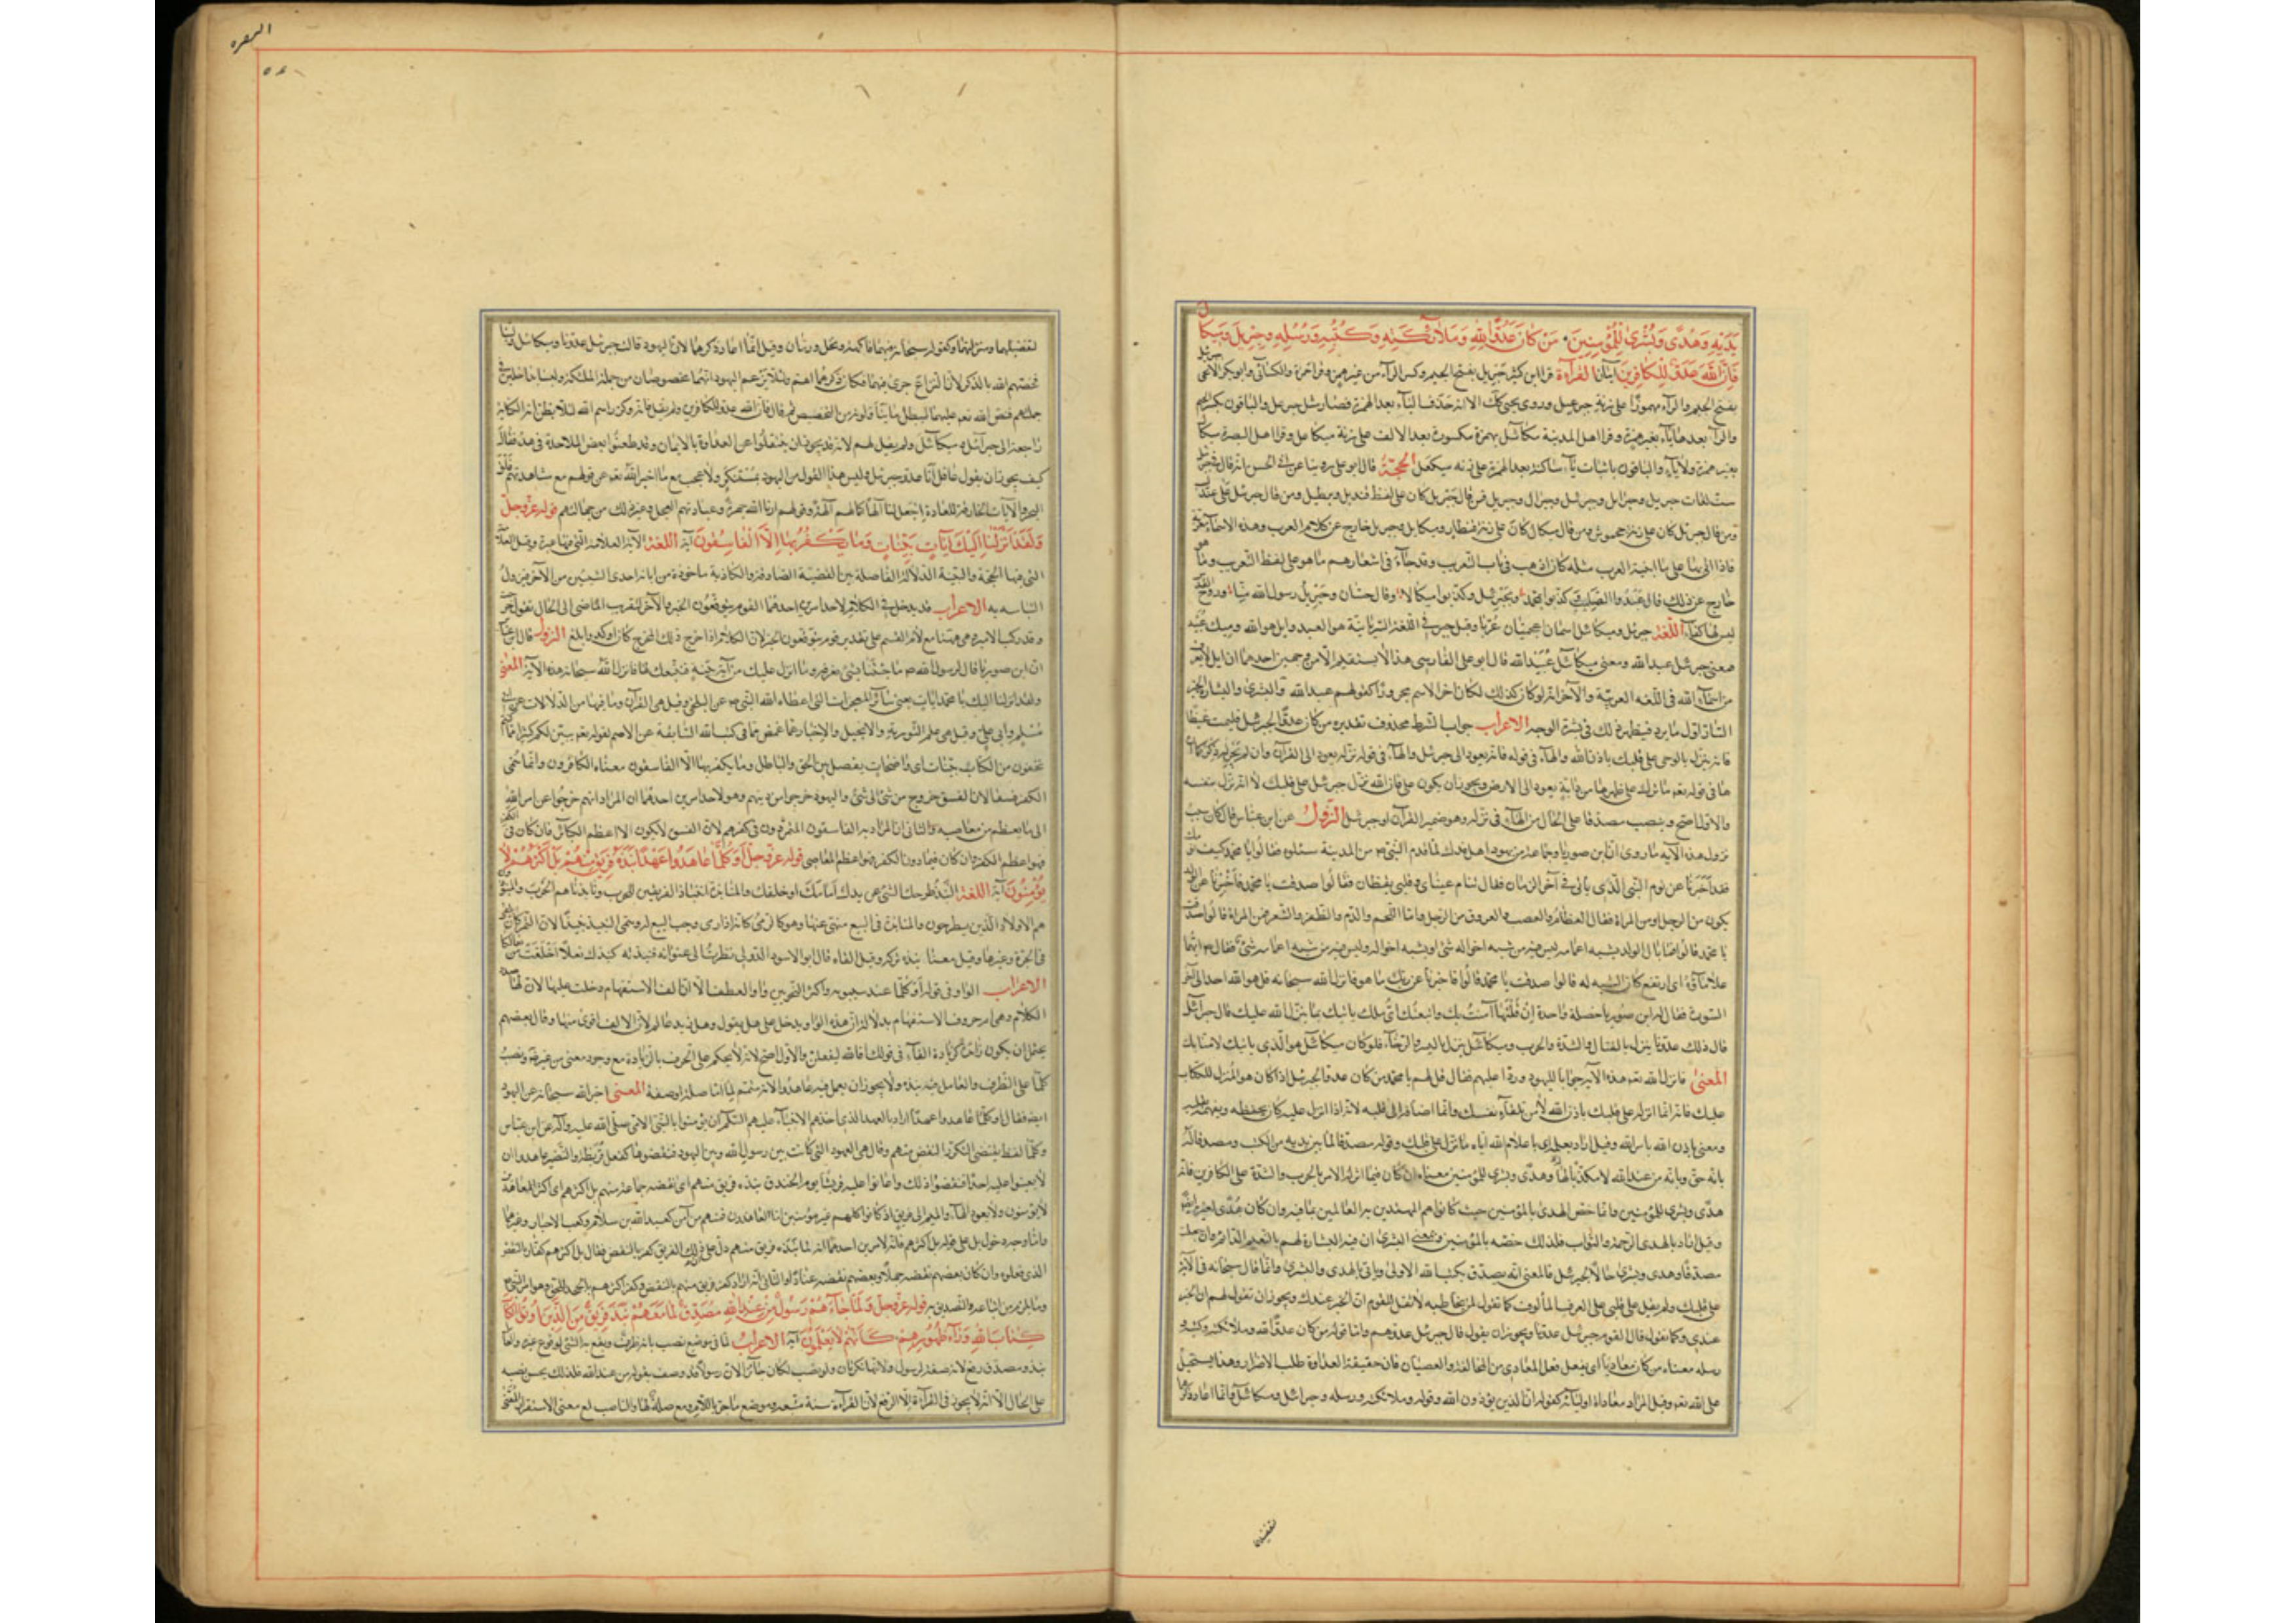 يَدَيْهِ وَهُدًى وَبُشْرىٰ لِلْمُؤْمِنِينَ مَنْ كَانَ عَدُوًّا لِلّٰهِ وَمَلَائِكَتِهِ وَكُتُبِهِ وَرُسُلِهِ وَجِبْرِيلَ وَمِيكَالَ
فَإِنَّ اللّٰهَ عَدُوٌّ لِلْكَافِرِينَ آيتان القراءة قرا ابن كثير جبريل بفتح الجيم وكسر الراء من غير همز وقرا حمزة والكسائي وابو بكر الا يحيى جبرئل
بفتح الجيم والراء مهموزا على زنة جبرعيل وروى يحيى كذلك الا انه حذف الياء بعد الهمزة فصار مثل جبرعل والباقون بكسر الجيم
والراء بعدها ياء بغير همزة وقرا اهل المدينة ميكائل بهمزة مكسورة بعد الالف على زنة ميكاعل وقرا اهل البصرة ميكال
بغير همزة ولا ياء والباقون باثبات ياء ساكنة بعد الهمزة على زنة ميكاعيل الحجّة قال ابو علي روينا عن ابي الحسن انه قال في جبرئل
ست لغات جبرئيل وجبرائل وجبرئل وجبرال وجبريل فمن قال جبريل كان على لفظ قنديل وبرطيل ومن قال جبرئيل فعلى عندليب
ومن قال جبرئل كان على زنة جحمرش ومن قال ميكال كان على زنة قنطار وميكايل وجبريل خارج عن كلام العرب وهذه الاسماء معربة
فاذا اتي بها على ما ابنية العرب مثله كان اذهب في باب التعريب وقد جاء في اشعارهم ما هو على لفظ التعريب وما هو
خارج عن ذلك قال عبدوا الصليب وكذبوا بمحمد وبجبرئيل وكذبوا ميكالا وقال حسان وجبريل رسول الله منا وروح القدس
ليس له كفاء اللّغة جبرئيل وميكائيل اسمان اعجميان عربا وقيل جبر في اللغة السريانية هو العبد وايل هو الله وميك عبيد
فمعنى جبرئيل عبد الله ومعنى ميكائيل عبيد الله قال ابو علي الفارسي هذا لا يستقيم لامرين احدهما ان ايل لا يعرف
من اسماء الله في اللغة العربية والآخر انه لو كان كذلك لكان اخر الاسم مجرورا كقولهم عبد الله والبشرى والبشارة الخبر
السار اول ما يرد فيظهر ذلك في بشرة الوجه الاعراب جواب الشرط محذوف تقديره من كان عدوا لجبرئيل فليمت غيظا
فانه ينزل بالوحي على قلبك باذن الله والهاء في قوله فانه يعود الى جبرئل والهاء في قوله نزله يعود الى القرآن وان لم يجر له ذكر كما ان
ها في قوله تع ما ترك على ظهرها من دابة يعود الى الارض ويجوز ان يكون على فان الله نزل جبرئل على قلبك لا انه نزل بنفسه
والاول اصح ونصب مصدقا على الحال من الهاء في نزله وهو ضمير القرآن او جبرئيل النزول عن ابن عباس قال كان سبب
نزول هذه الآية ما روي ان ابن صوريا وجماعة من يهود اهل فدك لما قدم النبي ص المدينة سئلوه فقالوا يا محمد كيف نومك
فقد اخبرنا عن نوم النبي الذي يأتي في آخر الزمان فقال تنام عيناي وقلبي يقظان فقالوا صدقت يا محمد فاخبرنا عن الولد
يكون من الرجل او من المراة فقال العظام والعصب والعروق من الرجل واما اللحم والدم والظفر والشعر فمن المراة قالوا صدقت
يا محمد قالوا فما بال الولد يشبه اعمامه ليس فيه من شبه اخواله شيء او يشبه اخواله وليس فيه من شبه اعمامه شيء فقال ايهما
علا ماؤه اي ارتفع كان الشبه له قالوا صدقت يا محمد قالوا فاخبرنا عن ربك ما هو فانزل الله سبحانه قل هو الله احد الى آخر
السورة فقال له ابن صوريا خصلة واحدة ان قلتها آمنت بك واتبعتك اي ملك يأتيك بما ينزل الله عليك قال جبرائيل
قال ذلك عدونا ينزل بالقتال والشدة والحرب وميكائيل ينزل باليسر والرخاء فلو كان ميكائيل هو الذي يأتيك لامنا بك
المعنى فانزل الله تع هذه الآية جوابا لليهود وردا عليهم فقال قل لهم يا محمد من كان عدوا لجبرئيل اذا كان هو المنزل للكتاب
عليك فانه انما انزله على قلبك باذن الله لا من تلقاء نفسك وانما اضافه الى قلبه لانه اذا انزل عليه كان يحفظه ويفهمه بقلبه
ومعنى باذن الله بامر الله وقيل اراد بعلمه اي باعلام الله اياه ما ينزل على قلبك وقوله مصدقا لما بين يديه من الكتب ومصدقا له
بانه حق وبانه من عند الله لا مكذبا لها وهدى وبشرى للمؤمنين معناه ان كان فيما انزله الامر بالحرب والشدة على الكافرين فانه
هدى وبشرى للمؤمنين وانما خص الهدى بالمؤمنين حيث كانوا هم المهتدين به العالمين بما فيه وان كان هدى لغيرهم ايضا
وقيل اراد بالهدى الرحمة والثواب فلذلك خصه بالمؤمنين ومعنى البشرى ان فيه البشارة لهم بالنعيم الدائم وان جعلت
مصدقا وهدى وبشرى حالا لجبرئيل فالمعنى انه يصدق بكتب الله الاولى ويأتي بالهدى والبشرى وانما قال سبحانه في الآية
على قلبك ولم يقل على قلبي على العرف المألوف كما تقول لمن تخاطبه لا تقل للقوم ان الخبر عندك ويجوز ان تقول لهم ان الخبر
عندي وكما تقول قال القوم جبرئيل عدونا ويجوز ان يقول قال جبرئيل عدوهم واما قوله من كان عدوا لله وملائكته وكتبه و
رسله معناه من كان معاديا اي يفعل فعل المعادي من المخالفة والعصيان فان حقيقة العداوة طلب الاضرار وهذا يستحيل
على الله تع وقيل المراد معاداة اوليائه كقوله ان الذين يؤذون الله وقوله وملائكته ورسله وجبرائيل وميكائيل فانما اعاد ذكرهما
لتفضيلهما
البقره
لتفضيلهما ومنزلتهما وكقوله سبحانه فيهما فاكهة ونخل ورمان وقيل انما اعاد ذكرهما لان اليهود قالت جبرئيل عدونا وميكائيل ولينا
فخصهم الله بالذكر لان النزاع جرى فيهما فكان ذكرهما اهم ولئلا يزعم اليهود انهما مخصوصان من جملة الملئكة وليسا داخلين في
جملتهم فنص الله تع عليهما ليبطل ما يتأولونه من التخصيص ثم قال فان الله عدو للكافرين ولم يقل فانه وكرر اسم الله لئلا يظن ان الكناية
راجعة الى جبرائيل وميكائيل ولم يقل لهم لانه قد يجوز ان ينتقلوا عن العداوة بالايمان وقد طعنوا بعض الملاحدة في هذا فقال
كيف يجوز ان يقول عاقل انا عدو جبرئيل وليس هذا القول من اليهود بمستنكر ولا عجب مع ما اخبر الله تع عن قولهم مع مشاهدتهم فلق
البحر والآيات الخارقة للعادة اجعل لنا الها كما لهم آلهة وقولهم ارنا الله جهرة وعبادتهم العجل وغير ذلك من جهالاتهم قوله عزّ وجلّ
وَلَقَدْ اَنْزَلْنَا اِلَيْكَ اٰيَاتٍ بَيِّنَاتٍ وَمَا يَكْفُرُ بِهَا اِلَّا الْفَاسِقُونَ آية اللغة الآية العلامة التي فيها عبرة وقيل العلامة
التي فيها الحجّة والبينة الدلالة الفاصلة بين القضية الصادقة والكاذبة ماخوذة من ابانة احدى الشيئين من الآخر فيزول
التباسه به الاعراب قد يدخل في الكلام لاحد امرين احدهما القوم يتوقعون الخبر والآخر لتقرب الماضي الى الحال تقول خرج
وقد ركب الامير وهي هيهنا مع لام القسم على تقدير قوم يتوقعون الخبر لان الكلام اذا اخرج ذلك المخرج كان اوكد وابلغ النزول قال ابن عباس
ان ابن صوريا قال لرسول الله ص ما جئتنا بشئ نعرفه وما انزل عليك من آية بينة فنتبعك لها فانزل الله سبحانه هذه الآية المعنى
ولقد انزلنا اليك يا محمد ايات يعني سائر المعجزات التي اعطاه الله النبي ص عن البلخي وقيل هي القرآن وما فيها من الدلالات عن ابي
مسلم وابي علي وقيل هي علم التورية والانجيل والاخبار عما غمض مما في كتب الله السالفة عن الاصم لقوله تع يبين لكم كثيرا مما كنتم
تخفون من الكتاب بينات اي واضحات يفصل بين الحق والباطل وما يكفر بها الا الفاسقون معناه الكافرون وانما سمي
الكفر فسقا لان الفسق خروج من شئ الى شئ واليهود خرجوا من دينهم وهو لاحد امرين احدهما ان المراد انهم خرجوا عن امر الله
الى ما يعظم من معاصيه والثاني ان المراد به الفاسقون المتمردون في كفرهم لان الفسق لا يكون الا اعظم الكبائر فان كان في الكفر
فهو اعظم الكفر وان كان فيما دون الكفر فهو اعظم المعاصي قوله عزّ وجلّ اَوَكُلَّمَا عَاهَدُوا عَهْدًا نَبَذَهُ فَرِيقٌ مِنْهُمْ بَلْ اَكْثَرُهُمْ لَا
يُؤْمِنُونَ آية اللغة النبذ طرحك الشئ عن يدك امامك او خلفك والمنابذة انتباذ الفريقين للحرب ونابذناهم الحرب والمنبوذون
هم الاولاد الذين يطرحون والمنابذة في البيع منهي عنها وهو كالرمي كانه اذا رمى وجب البيع له وسمي النبيذ نبيذا لان التمر كان يلقى
في الجرة وغيرها وقيل معنا نبذه تركه وقيل القاه قال ابو الاسود الدؤلي نظرت الى عنوانه فنبذته كنبذك نعلا اخلقت من نعالكا
الاعراب الواو في قوله اوكلما عند سيبويه واكثر النحويين واو العطف الا ان الف الاستفهام دخلت عليها لان لها صدر
الكلام وهي ام حروف الاستفهام بدلالة ان هذه الواو يدخل على هل يقول وهل زيد عالم لان الالف اقوى منها وقال بعضهم
يحتمل ان يكون زائدة كزيادة الفاء في قولك افالله ليفعلن والاول اصح لانه لا يحكم على الحرف بالزيادة مع وجود معنى من غير ضرورة ونصب
كلما على الظرف والعامل فيه نبذه ولا يجوز ان يعمل فيه عاهدوا لانه متمم لما اما صلة او صفة المعنى اخبر الله سبحانه عن اليهود
ايضا فقال اوكلما عاهدوا عهدا اراد به العهد الذي اخذه الانبياء عليهم السلام ان يؤمنوا بالنبي الامي صلى الله عليه وآله عن ابن عباس
وكلما لفظ يقتضي التكرر النقض منهم وقال هي العهود التي كانت بين رسول الله وبين اليهود فنقضوها كفعل قريظة والنضير عاهدوا ان
لا يعينوا عليه احدا فنقضوا ذلك واعانوا عليه قريشا يوم الخندق نبذه فريق منهم اي نقضه جماعة منهم بل اكثرهم اي اكثر المعاهدة
لا يؤمنون ولا يعود الهاء والميم الى فريق اذ كانوا كلهم غير مؤمنين اما المعاهدون فمنهم من آمن كعبد الله بن سلام وكعب الاحبار وغيرهما
واما وجه دخول بل على قوله بل اكثرهم فانه لامرين احدهما انه لما نبذه فريق منهم دل على ذلك الفريق كفر بالنقض فقال بل اكثرهم كفار بالنقض
الذي فعلوه وان كان بعضهم نقضه جهلا وبعضهم نقضه عنادا والثاني انه اراد كفر فريق منهم بالنقض وكفر اكثرهم بالجحد للحق وهو امر النبي ص
وما يلزم من اتباعه والتصديق به قوله عزّ وجلّ وَلَمَّا جَاءَهُمْ رَسُولٌ مِنْ عِنْدِ اللّٰهِ مُصَدِّقٌ لِمَا مَعَهُمْ نَبَذَ فَرِيقٌ مِنَ الَّذِينَ اُوتُوا الْكِتَابَ
كِتَابَ اللّٰهِ وَرَاءَ ظُهُورِهِمْ كَاَنَّهُمْ لَا يَعْلَمُونَ آية الاعراب لما في موضع نصب بانه ظرف ويقع به الشئ لوقوع غيره والعامل
نبذ ومصدق رفع لانه صفة لرسول ولانهما نكرتان ولو نصب لكان جائزا لان رسولا قد وصف بقوله من عند الله فلذلك يحسن نصبه
على الحال الا انه لا يجوز في القرآءة الا الرفع لان القرآءة سنة متبعة وموضع ما جر باللام ومع صلة لها والناصب لمع معنى الاستقرار المعنى